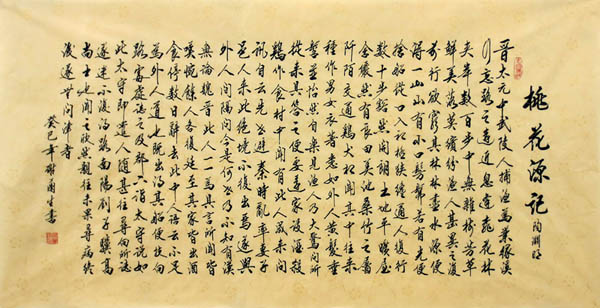 桃花源記
陶淵明
晉太元中武陵人捕漁為業緣溪
行忘路之遠近忽逢桃花林
夾岸數百步中無雜樹芳草
鮮美落英繽紛漁人甚異之復
前行欲窮其林林盡水源便
得一山山有小口髣髴若有光便
捨船從口入初極狹纔通人復行
數十步豁然開朗土地平曠屋
舍儼然有良田美池桑竹之屬
阡陌交通雞犬相聞其中往來
種作男女衣著悉如外人黃髮垂
髫並怡然自樂見漁人乃大驚問所
從來具答之便要還家設酒殺
雞作食村中聞有此人咸來問
訊自云先世避秦時亂率妻子
邑人來此絕境不復出焉遂與
外人間隔問今是何世乃不知有漢
無論魏晉此人一一為具言所聞皆
嘆惋餘人各復延至其家皆出酒
食停數日辭去此中人語云不足
為外人道也既出得其船便扶向
路處處誌之及郡下詣太守說如
此太守即遣人隨其往尋向所誌
遂迷不復得路南陽劉子驥高
尚士也聞之欣然親往未果尋病終
後遂無問津者
癸巳年